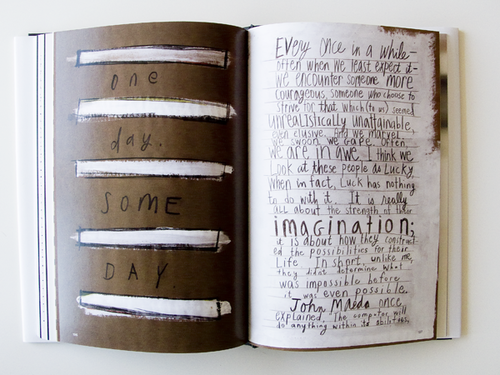 one
day.
SOME
DAY
EVERY ONCE IN a while-
often when we least expect it-
we encounter someone more
courageous, someone who choose to
strive for that which (to us) seemed
unrealistically unattainable,
even elusive. And we marvel.
We swoon. We gape. Often,
we are in awe. I think we
look at these people as lucky
when in fact, Luck has nothing
to do with it. It is really
all about the strength of their
imagination;
it is about how they construct-
ed the possibilities for their
life. In short, unlike me,
they didnt determine what
was impossible before
it was even possible.
John Maeda once
explained, The computer will
do anything within its abilities,